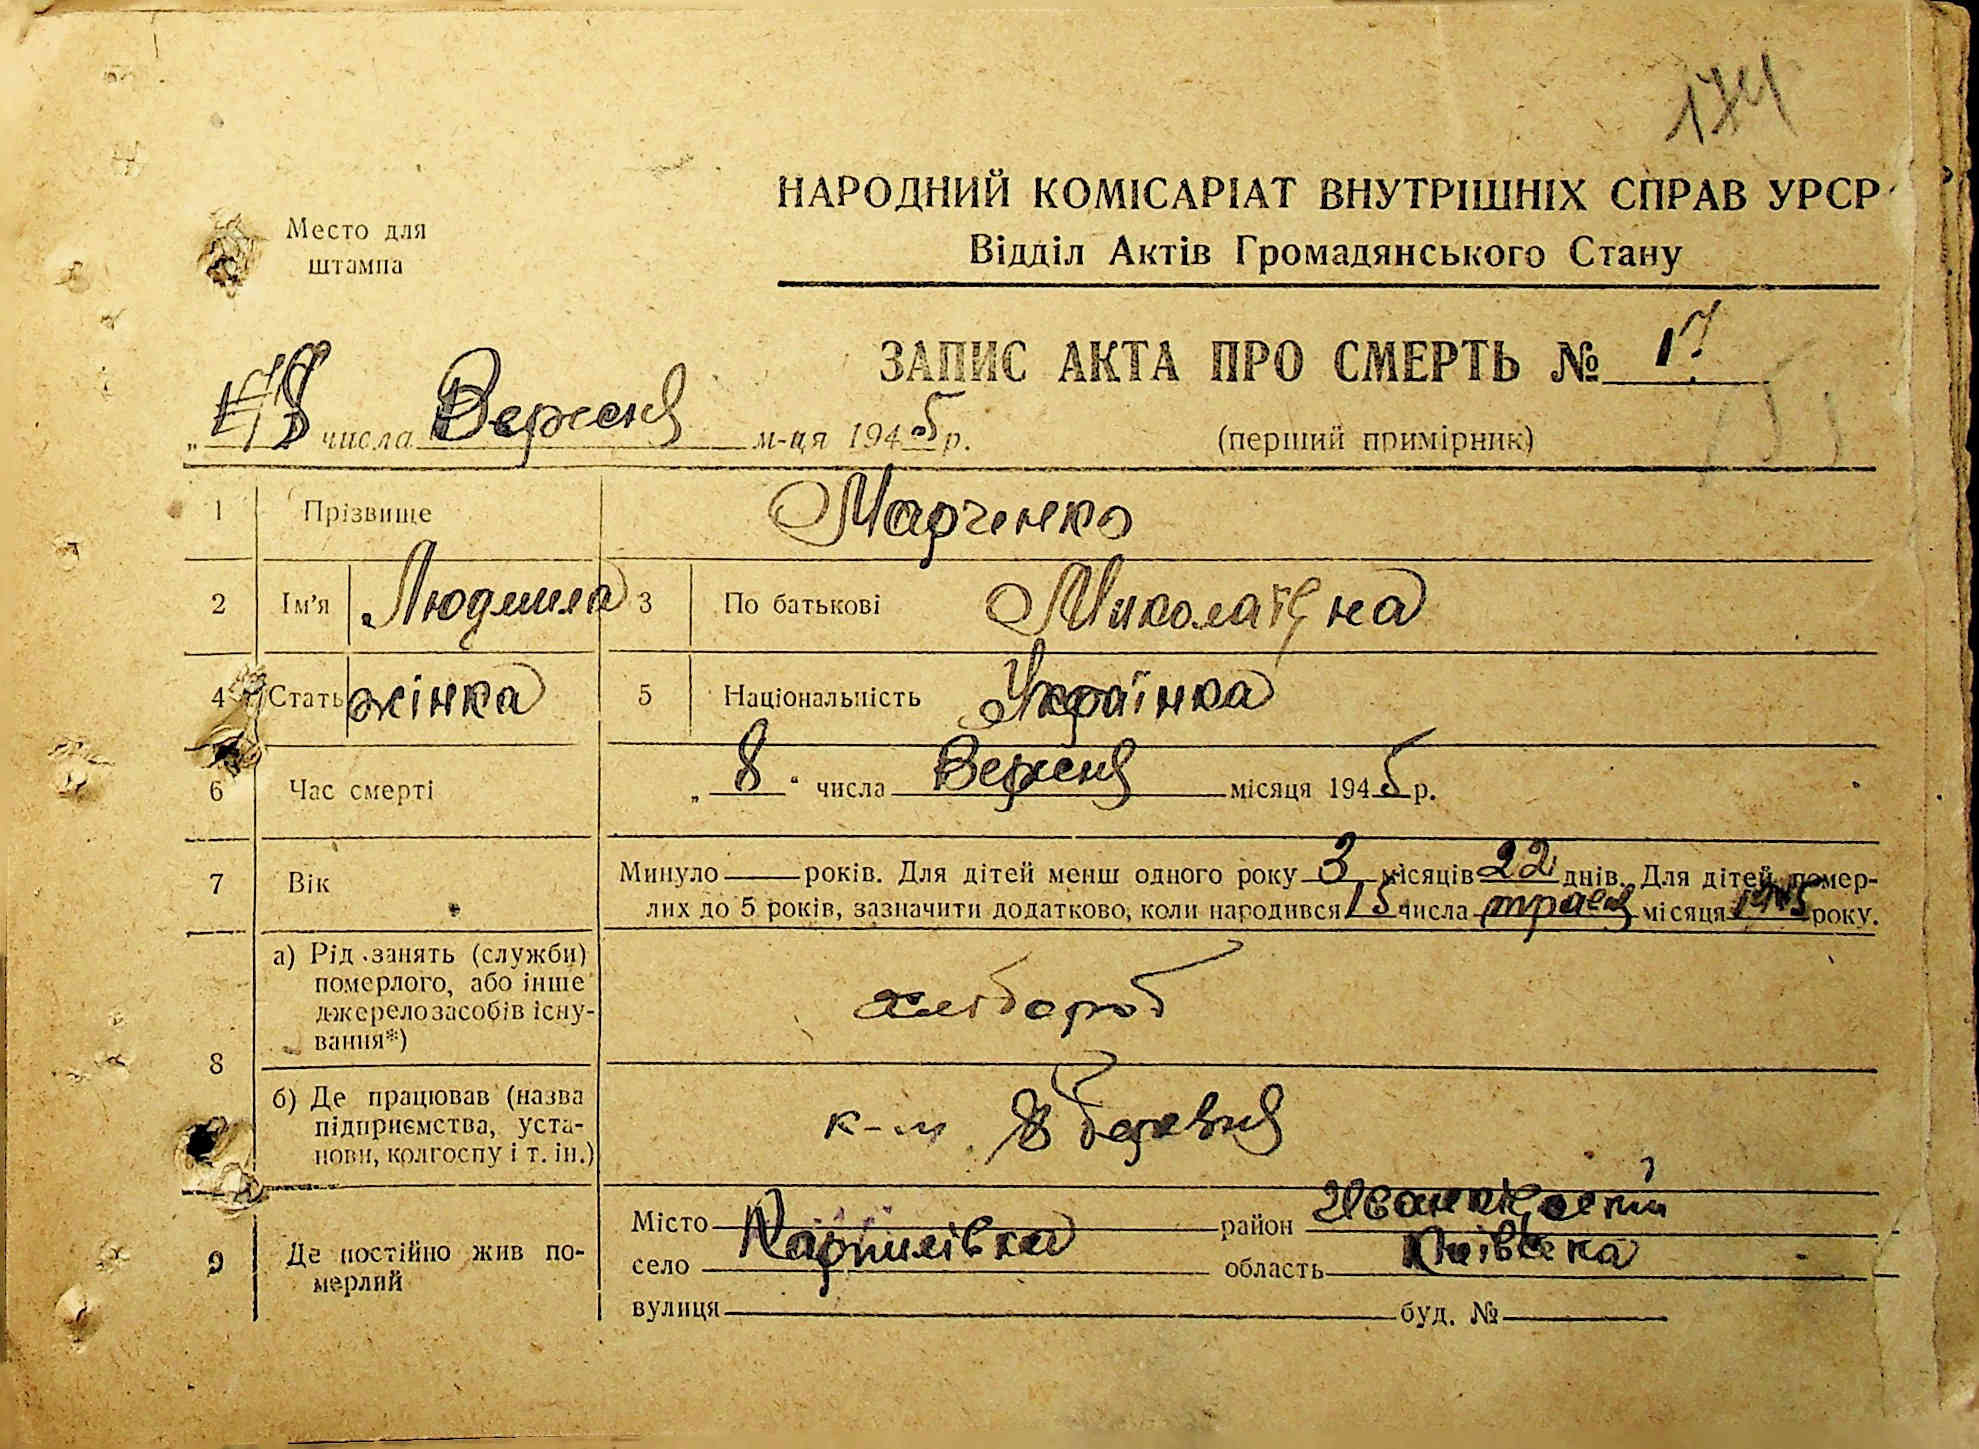 174
НАРОДНИЙ КОМІСАРІАТ ВНУТРІШНІХ СПРАВ УРСР
Відділ Актів Громадянського Стану
Место для
штампа
ЗАПИС АКТА ПРО СМЕРТЬ № 17
„ 8 числа Вересня м-ця 1945 р.
(перший примірник)
1 Прізвище Марченко
2 Ім'я Людмила 3 По батькові Миколаївна
4 Стать жінка 5 Національність Українка
6 Час смерті „ 8 “ числа Вересня місяця 1945 р.
7 Вік Минуло — років. Для дітей менш одного року 3 місяців 22 днів. Для дітей, помер-
лих до 5 років, зазначити додатково, коли народився 15 числа травня місяця 1945 року.
8 а) Рід занять (служби)
померлого, або інше
джерело засобів існу-
вання*)
хлібороб
б) Де працював (назва
підприємства, уста-
нови, колгоспу і т. ін.)
к-п 8 березня
9 Де постійно жив по-
мерлий
Місто район Іванківський
село Карпилівка область Київська
вулиця буд. №